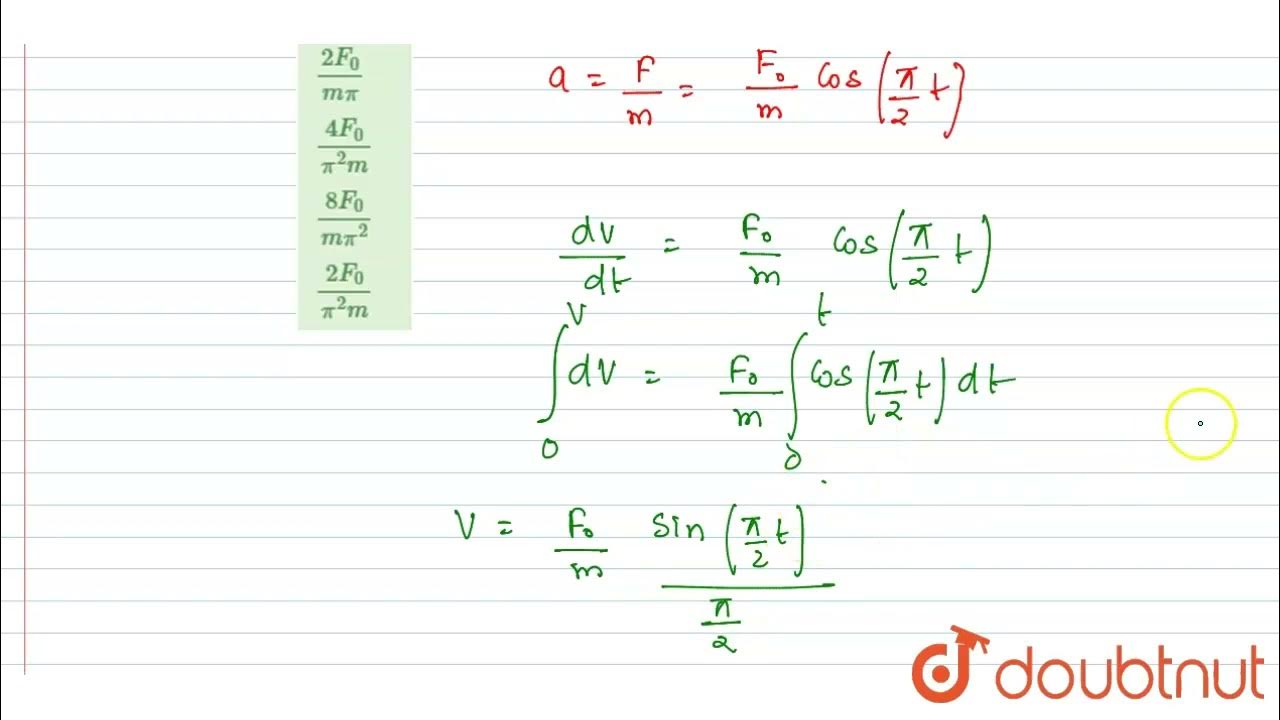 2F₀/mπ
4F₀/π²m
8F₀/mπ²
2F₀/π²m
a = F/m = F₀/m cos(π/2 t)
dv/dt = F₀/m cos(π/2 t)
∫₀ᵛ dv = F₀/m ∫₀ᵗ cos(π/2 t) dt
v = F₀/m sin(π/2 t)/(π/2)
doubtnut